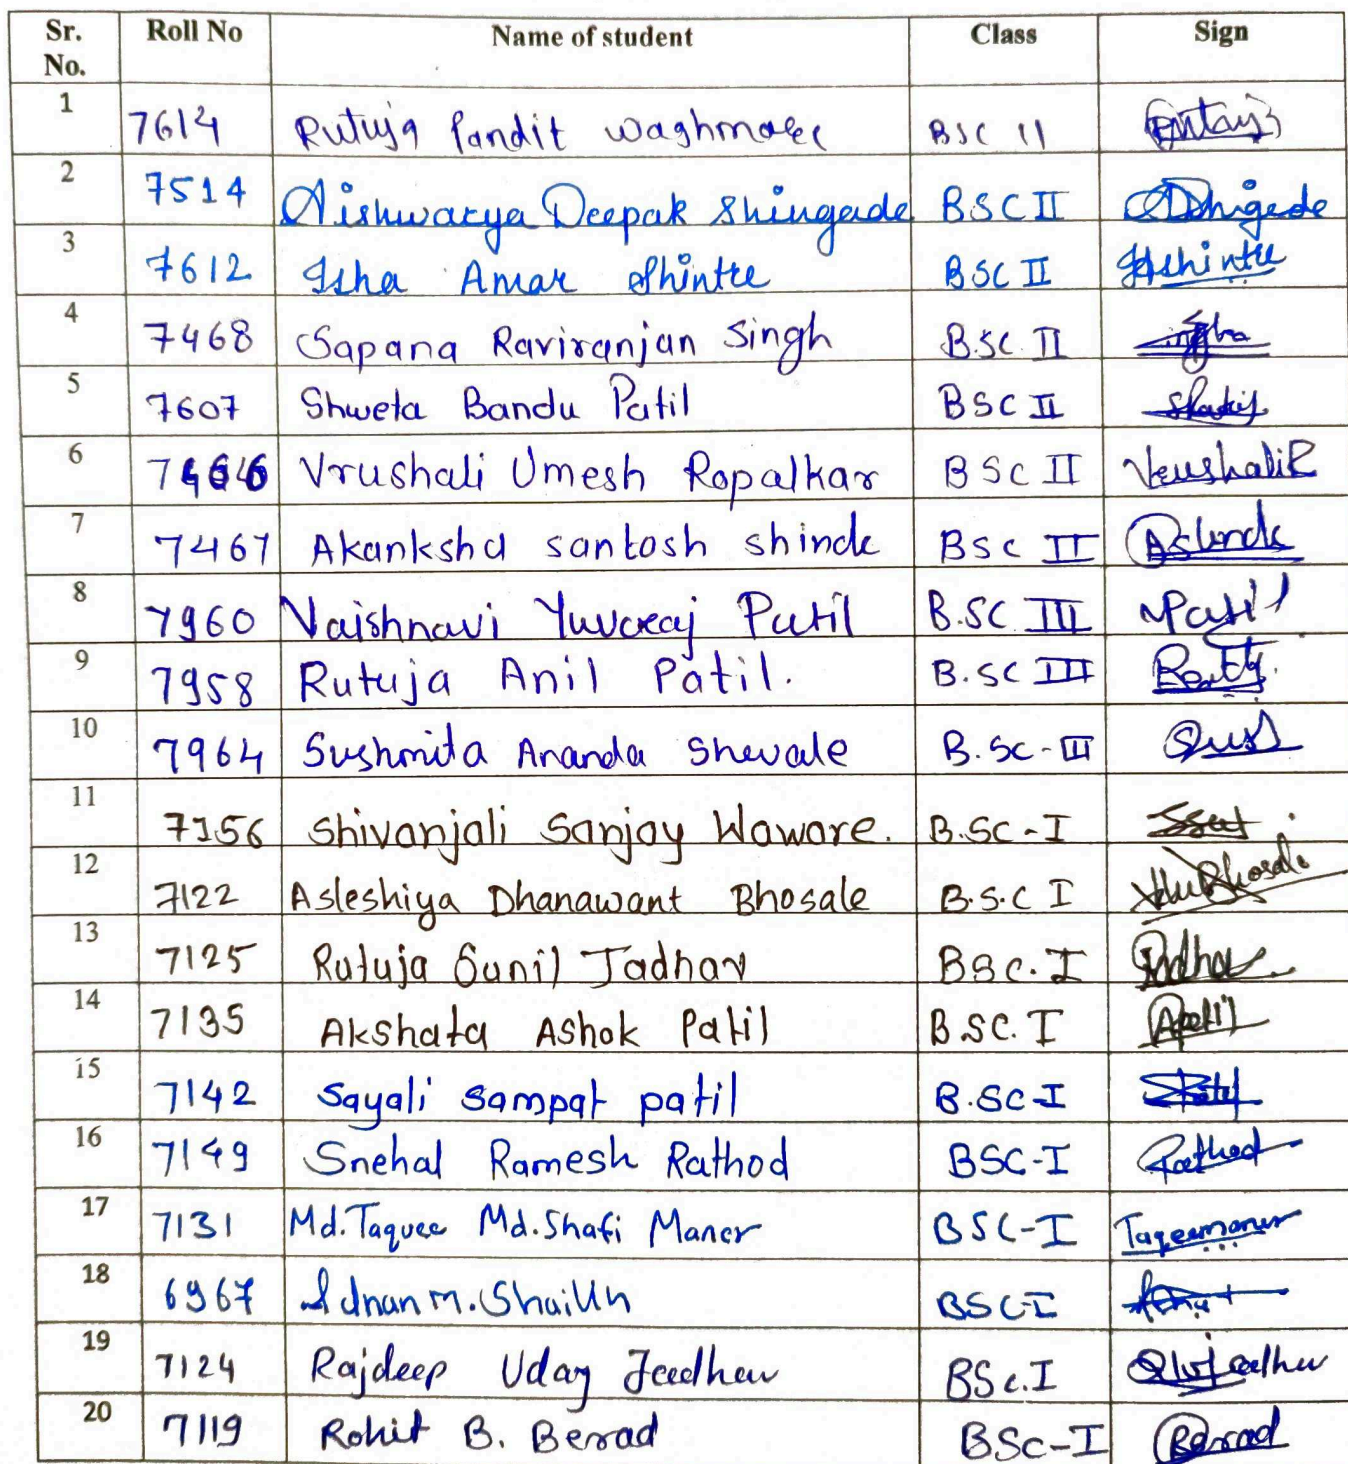 Sr. No. Roll No Name of student Class Sign
1 7614 Rutuja Pandit Waghmare BSC II
2 7514 Aishwarya Deepak Shingade BSC II
3 7612 Isha Amar Shintre BSC II AShintre
4 7468 Sapana Raviranjan Singh B.SC. II
5 7607 Shweta Bandu Patil BSC II
6 Vrushali Umesh Ropalkar BSC II VrushaliR
7 7467 Akanksha santosh shinde BSC II
8 7960 Vaishnavi Yuvraj Patil B.SC III
9 7958 Rutuja Anil Patil. B.SC III
10 7964 Sushmita Ananda Shewale B.Sc-III
11 7156 Shivanjali Sanjay Waware. B.SC-I
12 7122 Asleshiya Dhanawant Bhosale B.S.C I
13 7125 Rutuja Sunil Jadhav BSC.I
14 7135 Akshata Ashok Patil B.SC.I Apatil
15 7142 Sayali sampat patil B.SC-I
16 7149 Snehal Ramesh Rathod BSC-I Rathod
17 7131 Md.Taquee Md.Shafi Maner BSC-I Taqeemaner
18 6967 Adnan M. Shaikh BSC-I
19 7124 Rajdeep Uday Jadhav BSc.I
20 7119 Rohit B. Berad BSc-I Berad